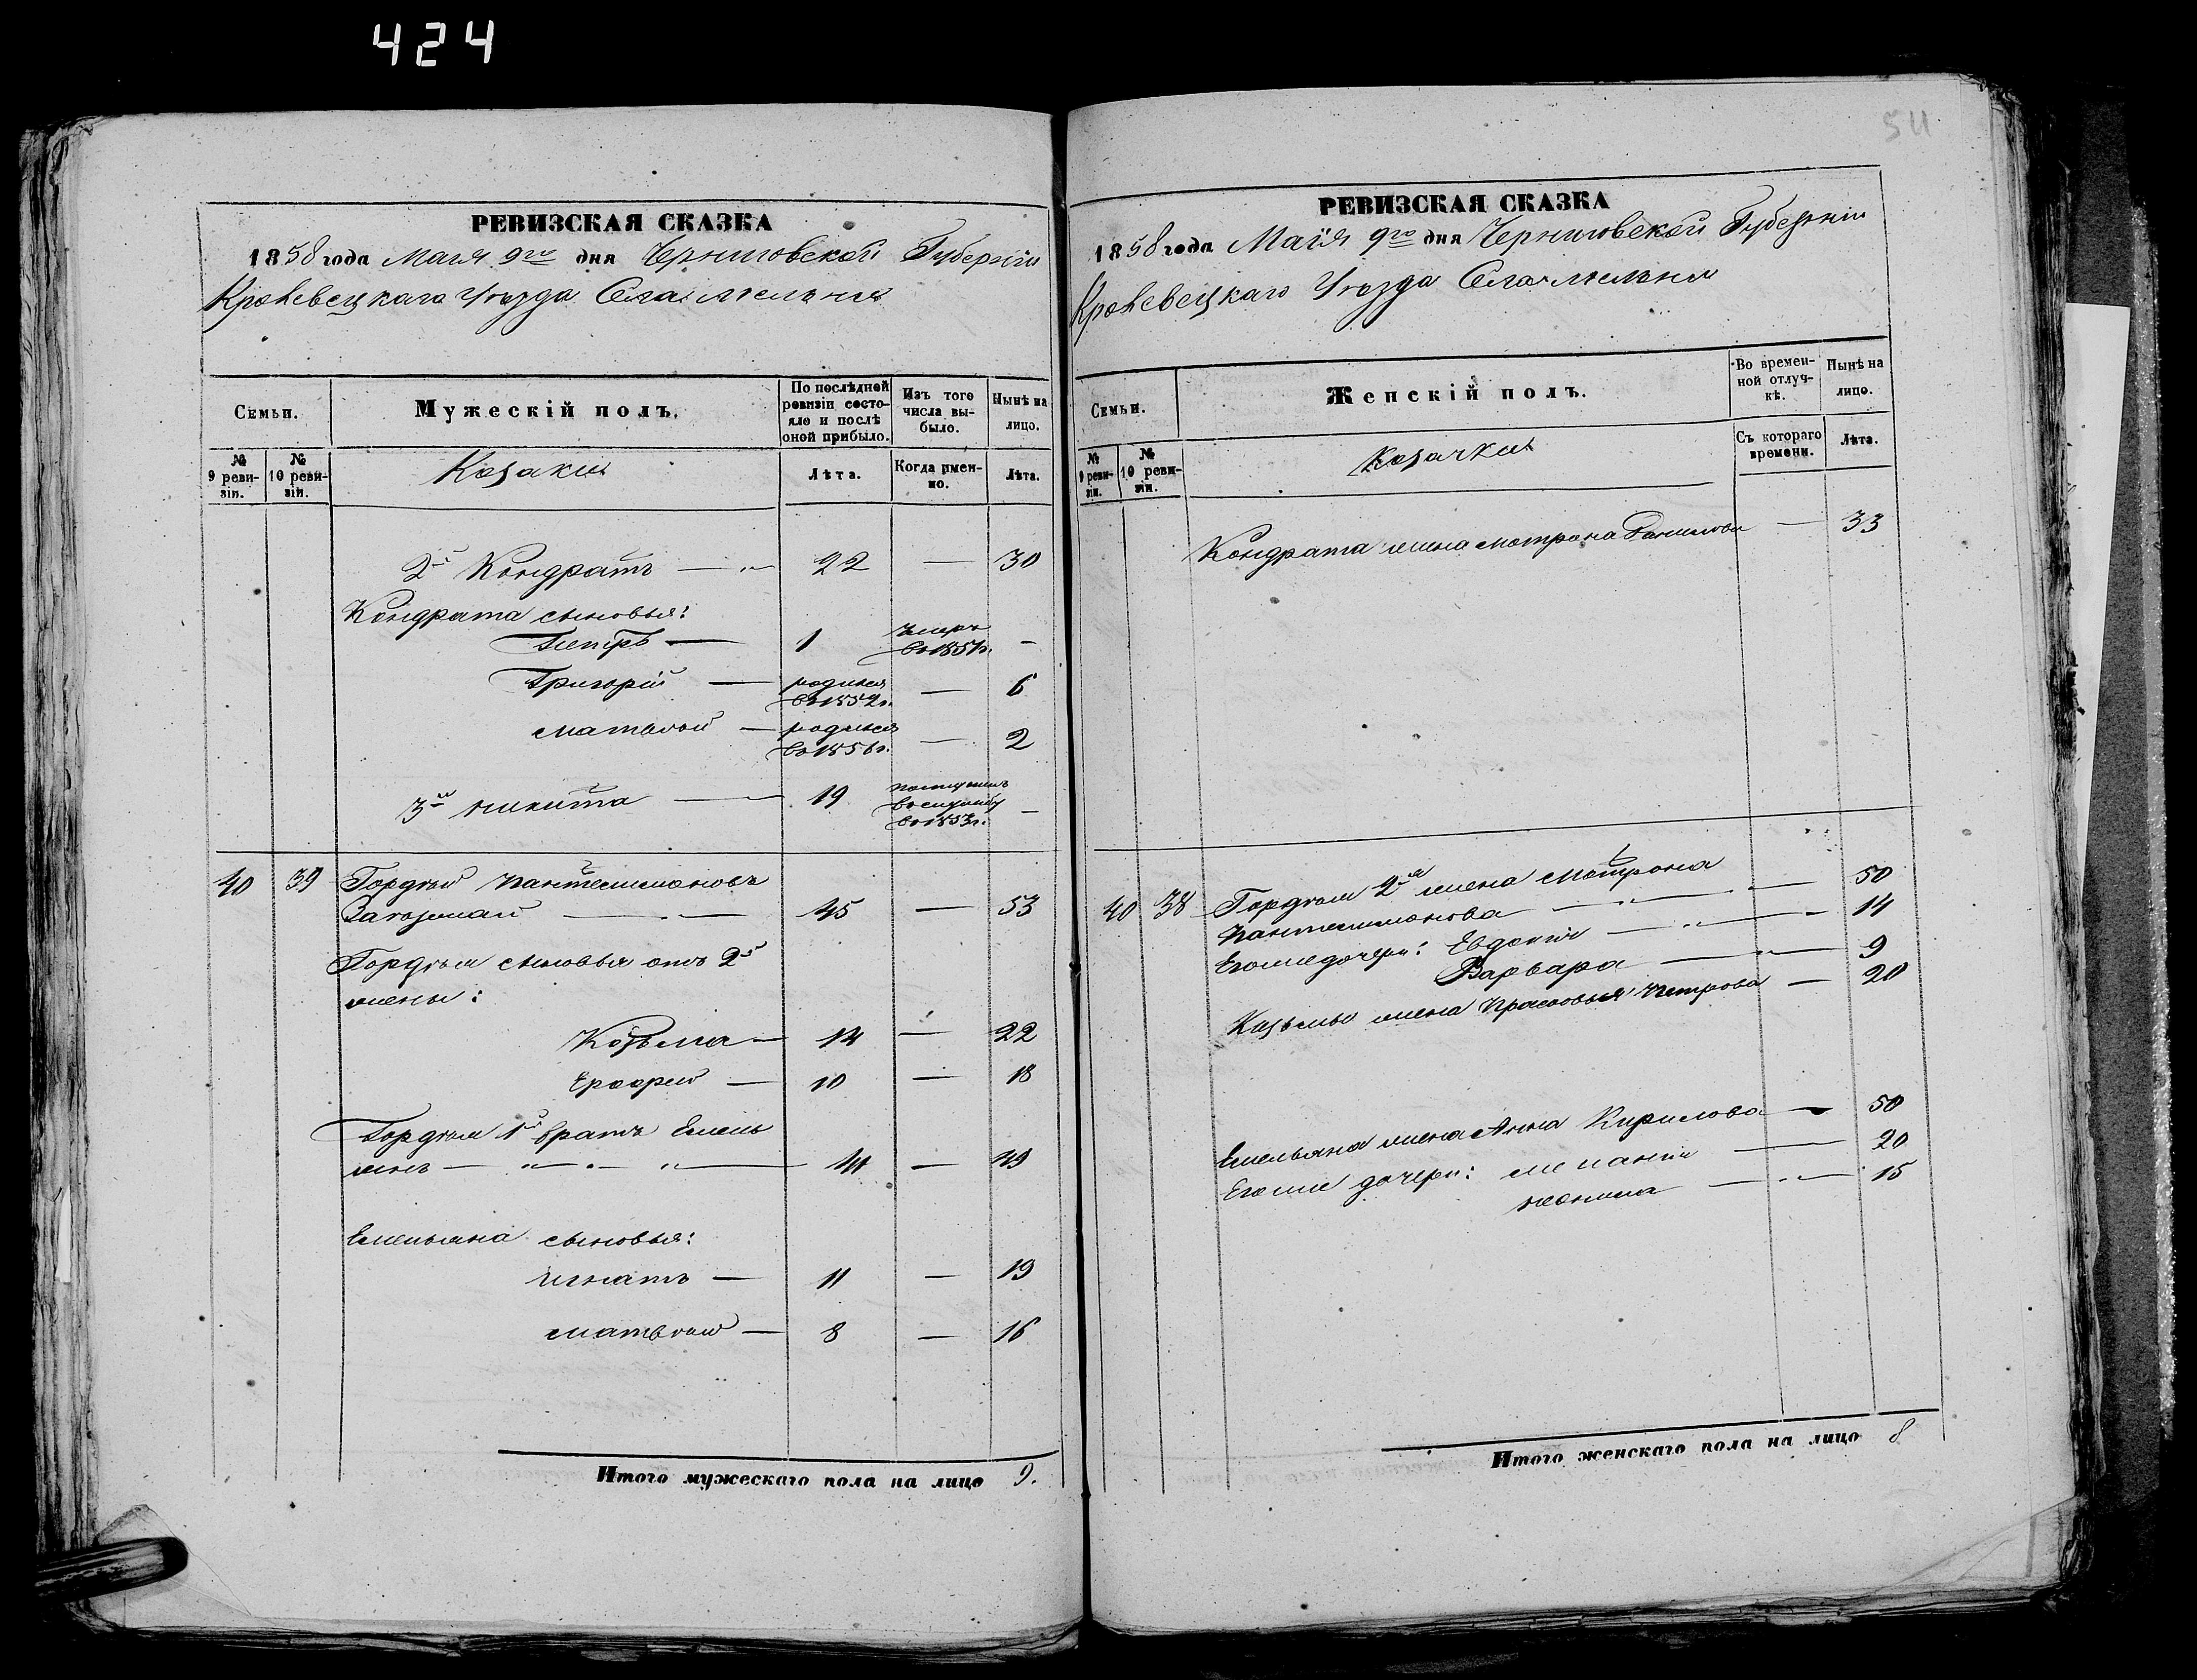 424
511
РЕВИЗСКАЯ СКАЗКА
1858 года Маія 9го дня Черниговской Губерніи
Кролевецкаго Уѣзда Села Мельни
Семьи.
Мужескій полъ.
По послѣдней ревизіи состояло и послѣ оной прибыло.
Изъ того числа выбыло.
Нынѣ на лицо.
№ 9 ревизіи.
№ 10 ревизіи.
Козаки
Лѣта.
Когда именно.
Лѣта.
2й Кондратъ — 22 — 30
Кондрата сыновья:
Петръ — 1 умеръ въ 1851г. —
Григорій — родился въ 1852г. — 6
Матвѣй — родился въ 1856г. — 2
3й Никита — 19 поступилъ въ службу въ 1853г. —
40 39 Гордѣй Пантелимоновъ
Загорман — 45 — 53
Гордѣя сыновья отъ 2й
жены:
Козьма — 14 — 22
Ерофей — 10 — 18
Гордѣя 1й братъ Емель
янъ — 41 — 49
Емельяна сыновья:
Игнатъ — 11 — 19
Матвѣй — 8 — 16
Итого мужескаго пола на лицо 9.
РЕВИЗСКАЯ СКАЗКА
1858 года Маія 9го дня Черниговской Губерніи
Кролевецкаго Уѣзда Села Мельни
Семьи.
Женскій полъ.
Во временной отлучкѣ.
Нынѣ на лицо.
№ 9 ревизіи.
№ 10 ревизіи.
Козачки
Съ котораго времени.
Лѣта.
Кондрата жена Мотрона Данилова — 33
40 38 Гордѣя 2я жена Мотрона
Пантелимонова — 50
Егоже дочери: Евдокія — 14
Варвара — 9
Козьмы жена Прасковья Петрова — 20
Емельяна жена Анна Кирилова — 50
Егоже дочери: Меланія — 20
Неонила — 15
Итого женскаго пола на лицо 8